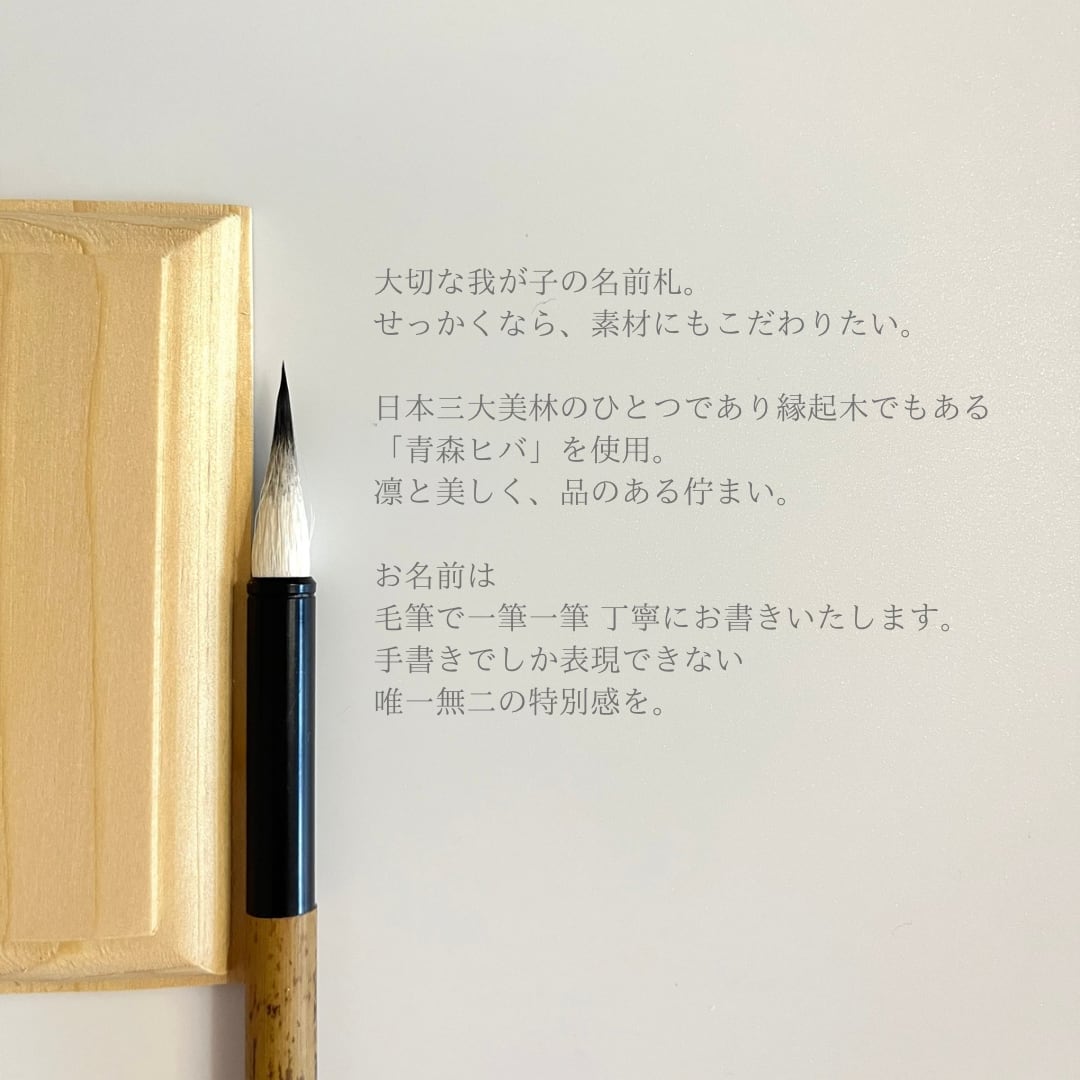 大切な我が子の名前札。
せっかくなら、素材にもこだわりたい。
日本三大美林のひとつであり縁起木でもある
「青森ヒバ」を使用。
凛と美しく、品のある佇まい。
お名前は
毛筆で一筆一筆 丁寧にお書きいたします。
手書きでしか表現できない
唯一無二の特別感を。